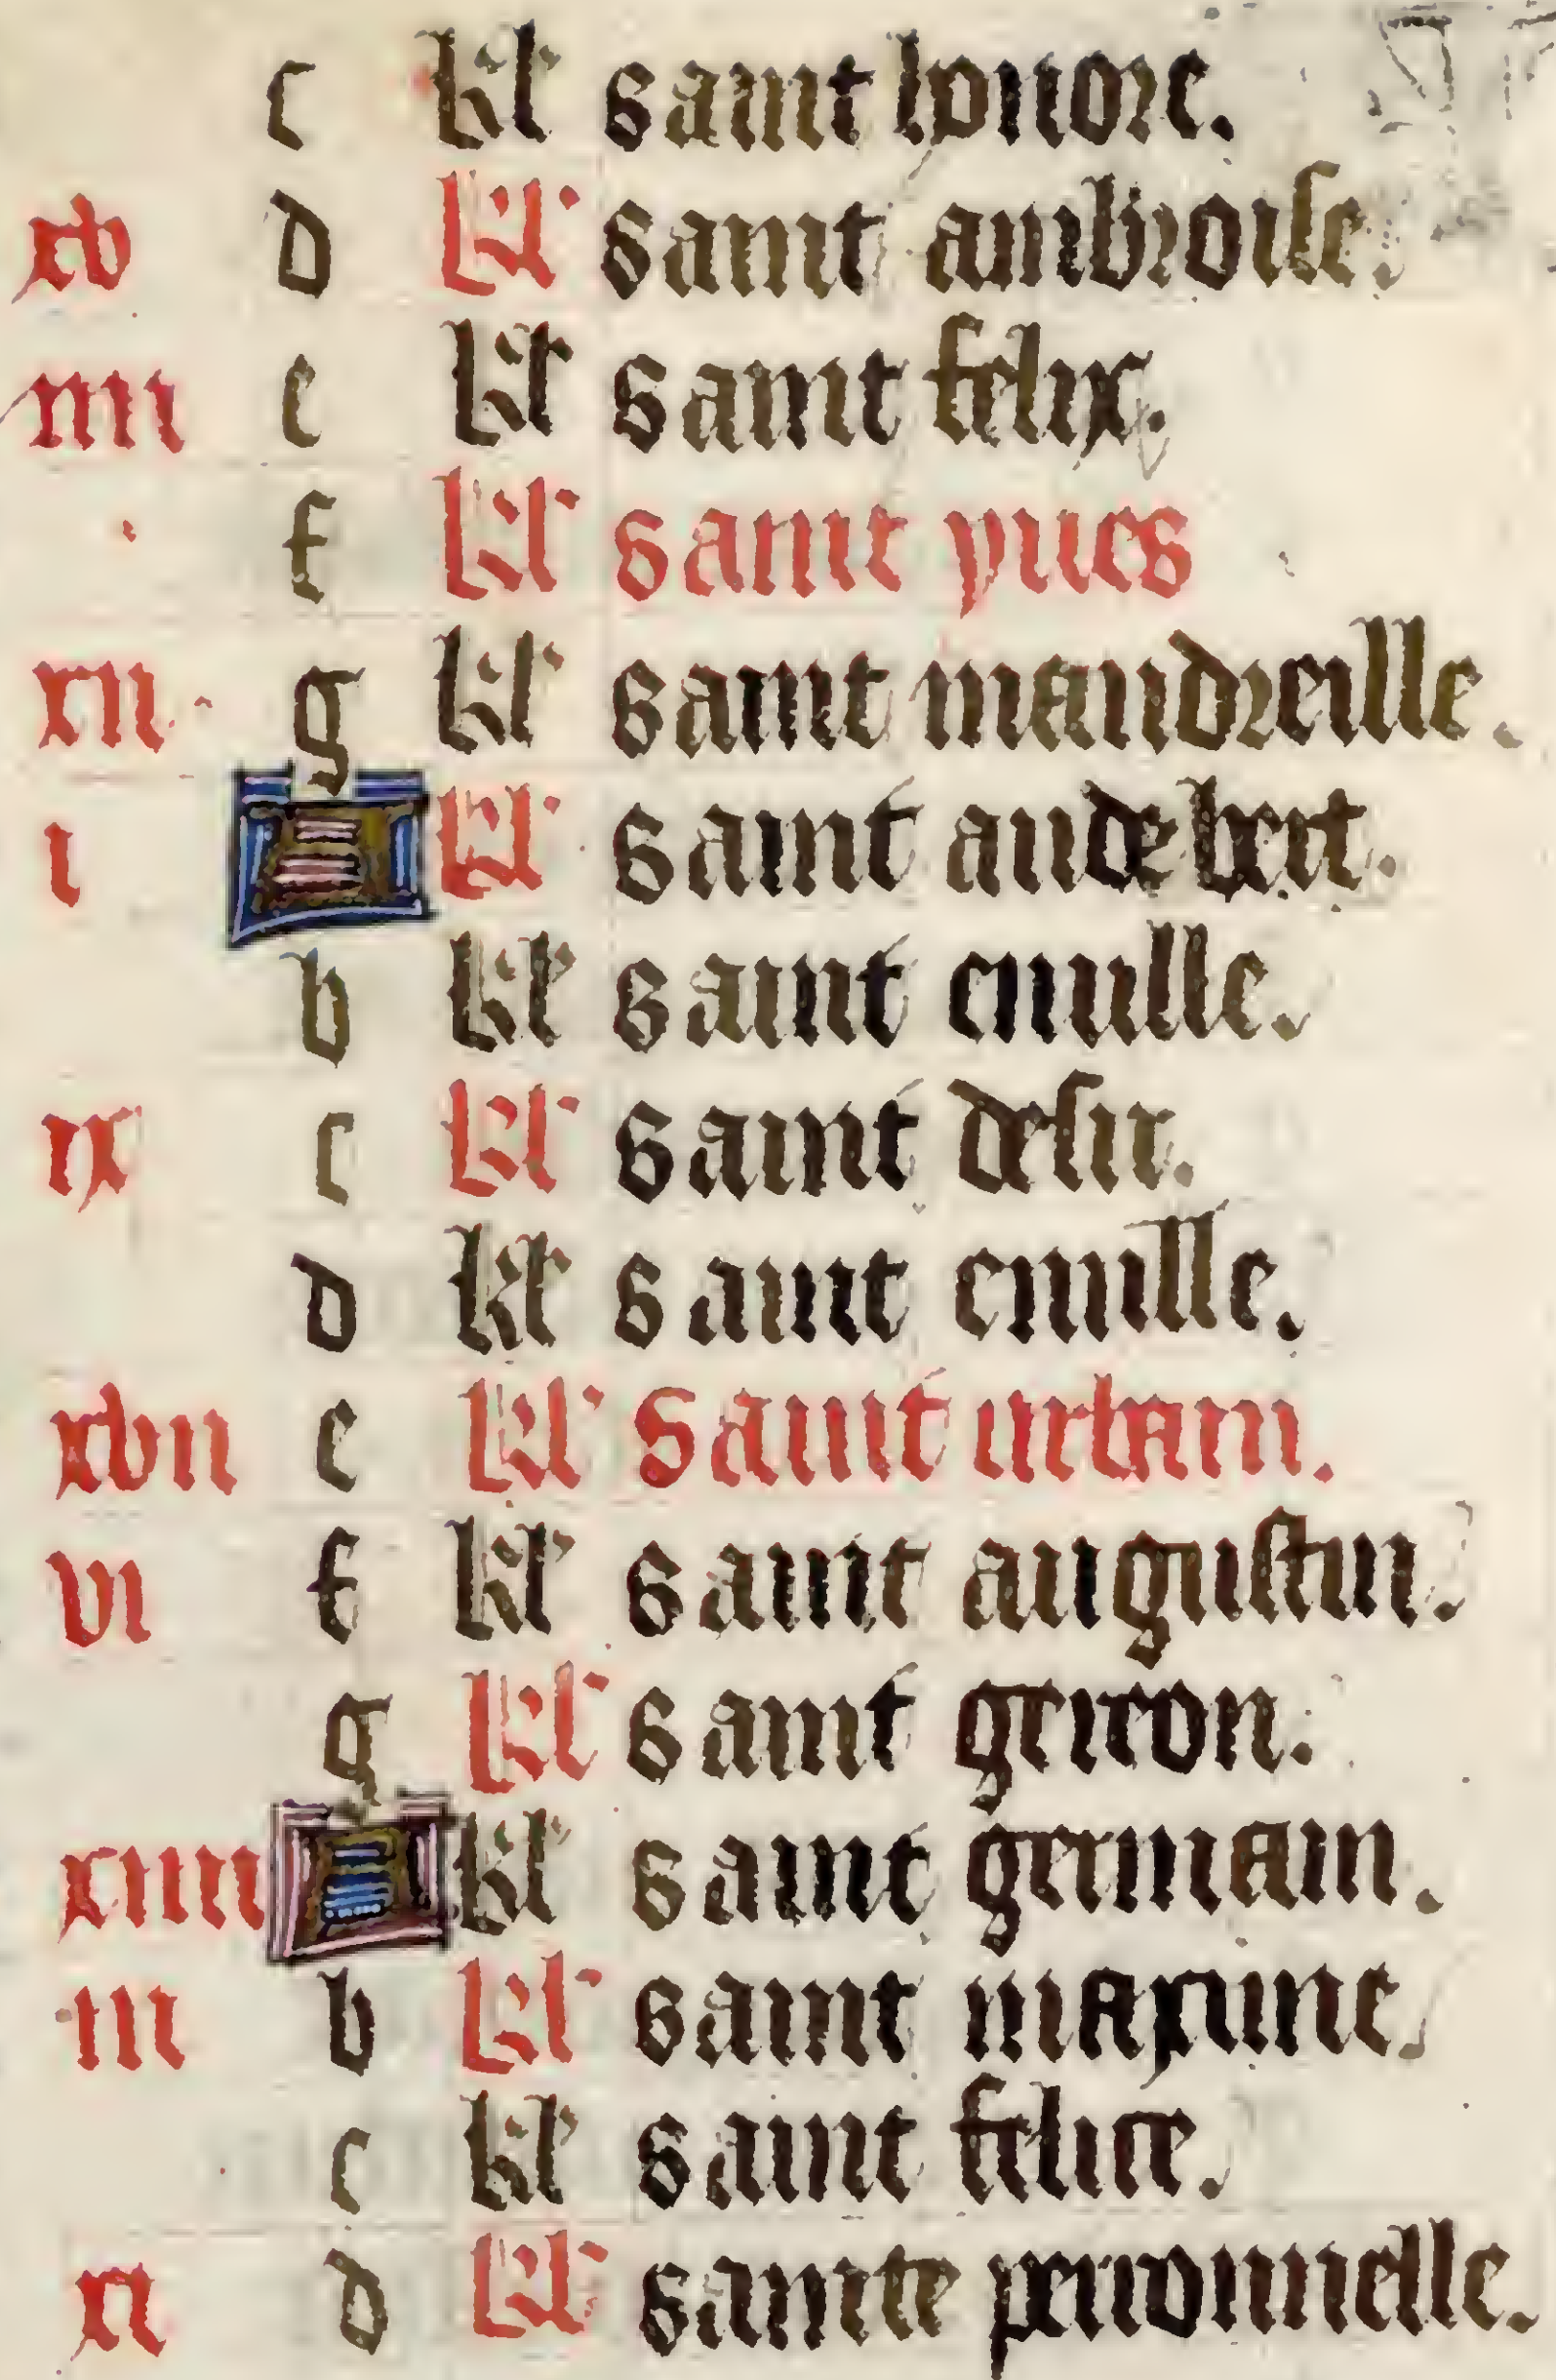 c kl' saint honore.
xv d kl' saint ambroise.
iiii e kl' saint felix.
f kl' saint yues
xii g kl' saint mandreille.
i A kl' saint audebert.
b kl' saint emille.
ix c kl' saint desir.
d kl' saint emille.
xvii e kl' saint urbain.
vi f kl' saint augustin.
g kl' saint
xiiii A kl' saint germain.
iii b kl' saint maxime.
c kl' saint felice.
xi d kl' sainte perronnelle.